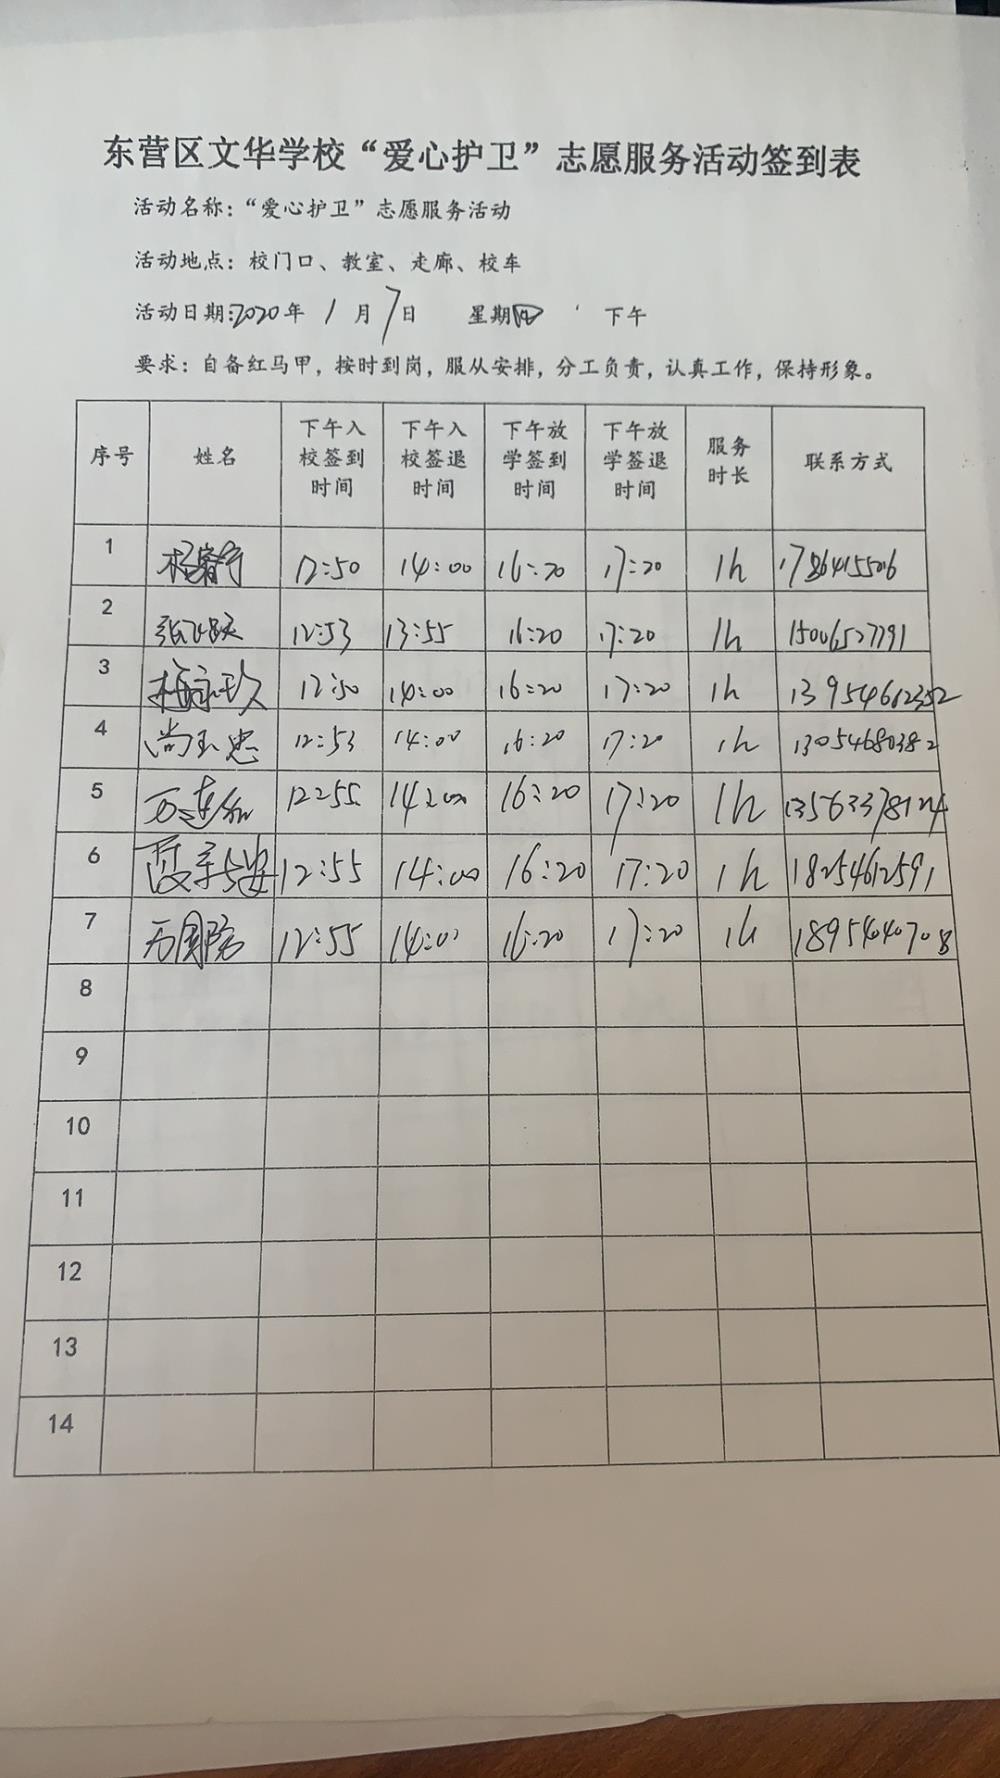 东营区文华学校“爱心护卫”志愿服务活动签到表
活动名称：“爱心护卫”志愿服务活动
活动地点：校门口、教室、走廊、校车
活动日期：2020年 1月7日 星期四 下午
要求：自备红马甲，按时到岗，服从安排，分工负责，认真工作，保持形象。
序号 姓名 下午入校签到时间 下午入校签退时间 下午放学签到时间 下午放学签退时间 服务时长 联系方式
1 12:50 14:00 16:20 17:20 1h
2 12:53 13:55 16:20 17:20 1h 15006527791
3 12:50 14:00 16:20 17:20 1h 13954612352
4 尚玉忠 12:53 14:00 16:20 17:20 1h 13054680382
5 12:55 14:00 16:20 17:20 1h 13563378124
6 12:55 14:00 16:20 17:20 1h 18254612591
7 万国防 12:55 14:00 16:20 17:20 1h 18954040708
8
9
10
11
12
13
14